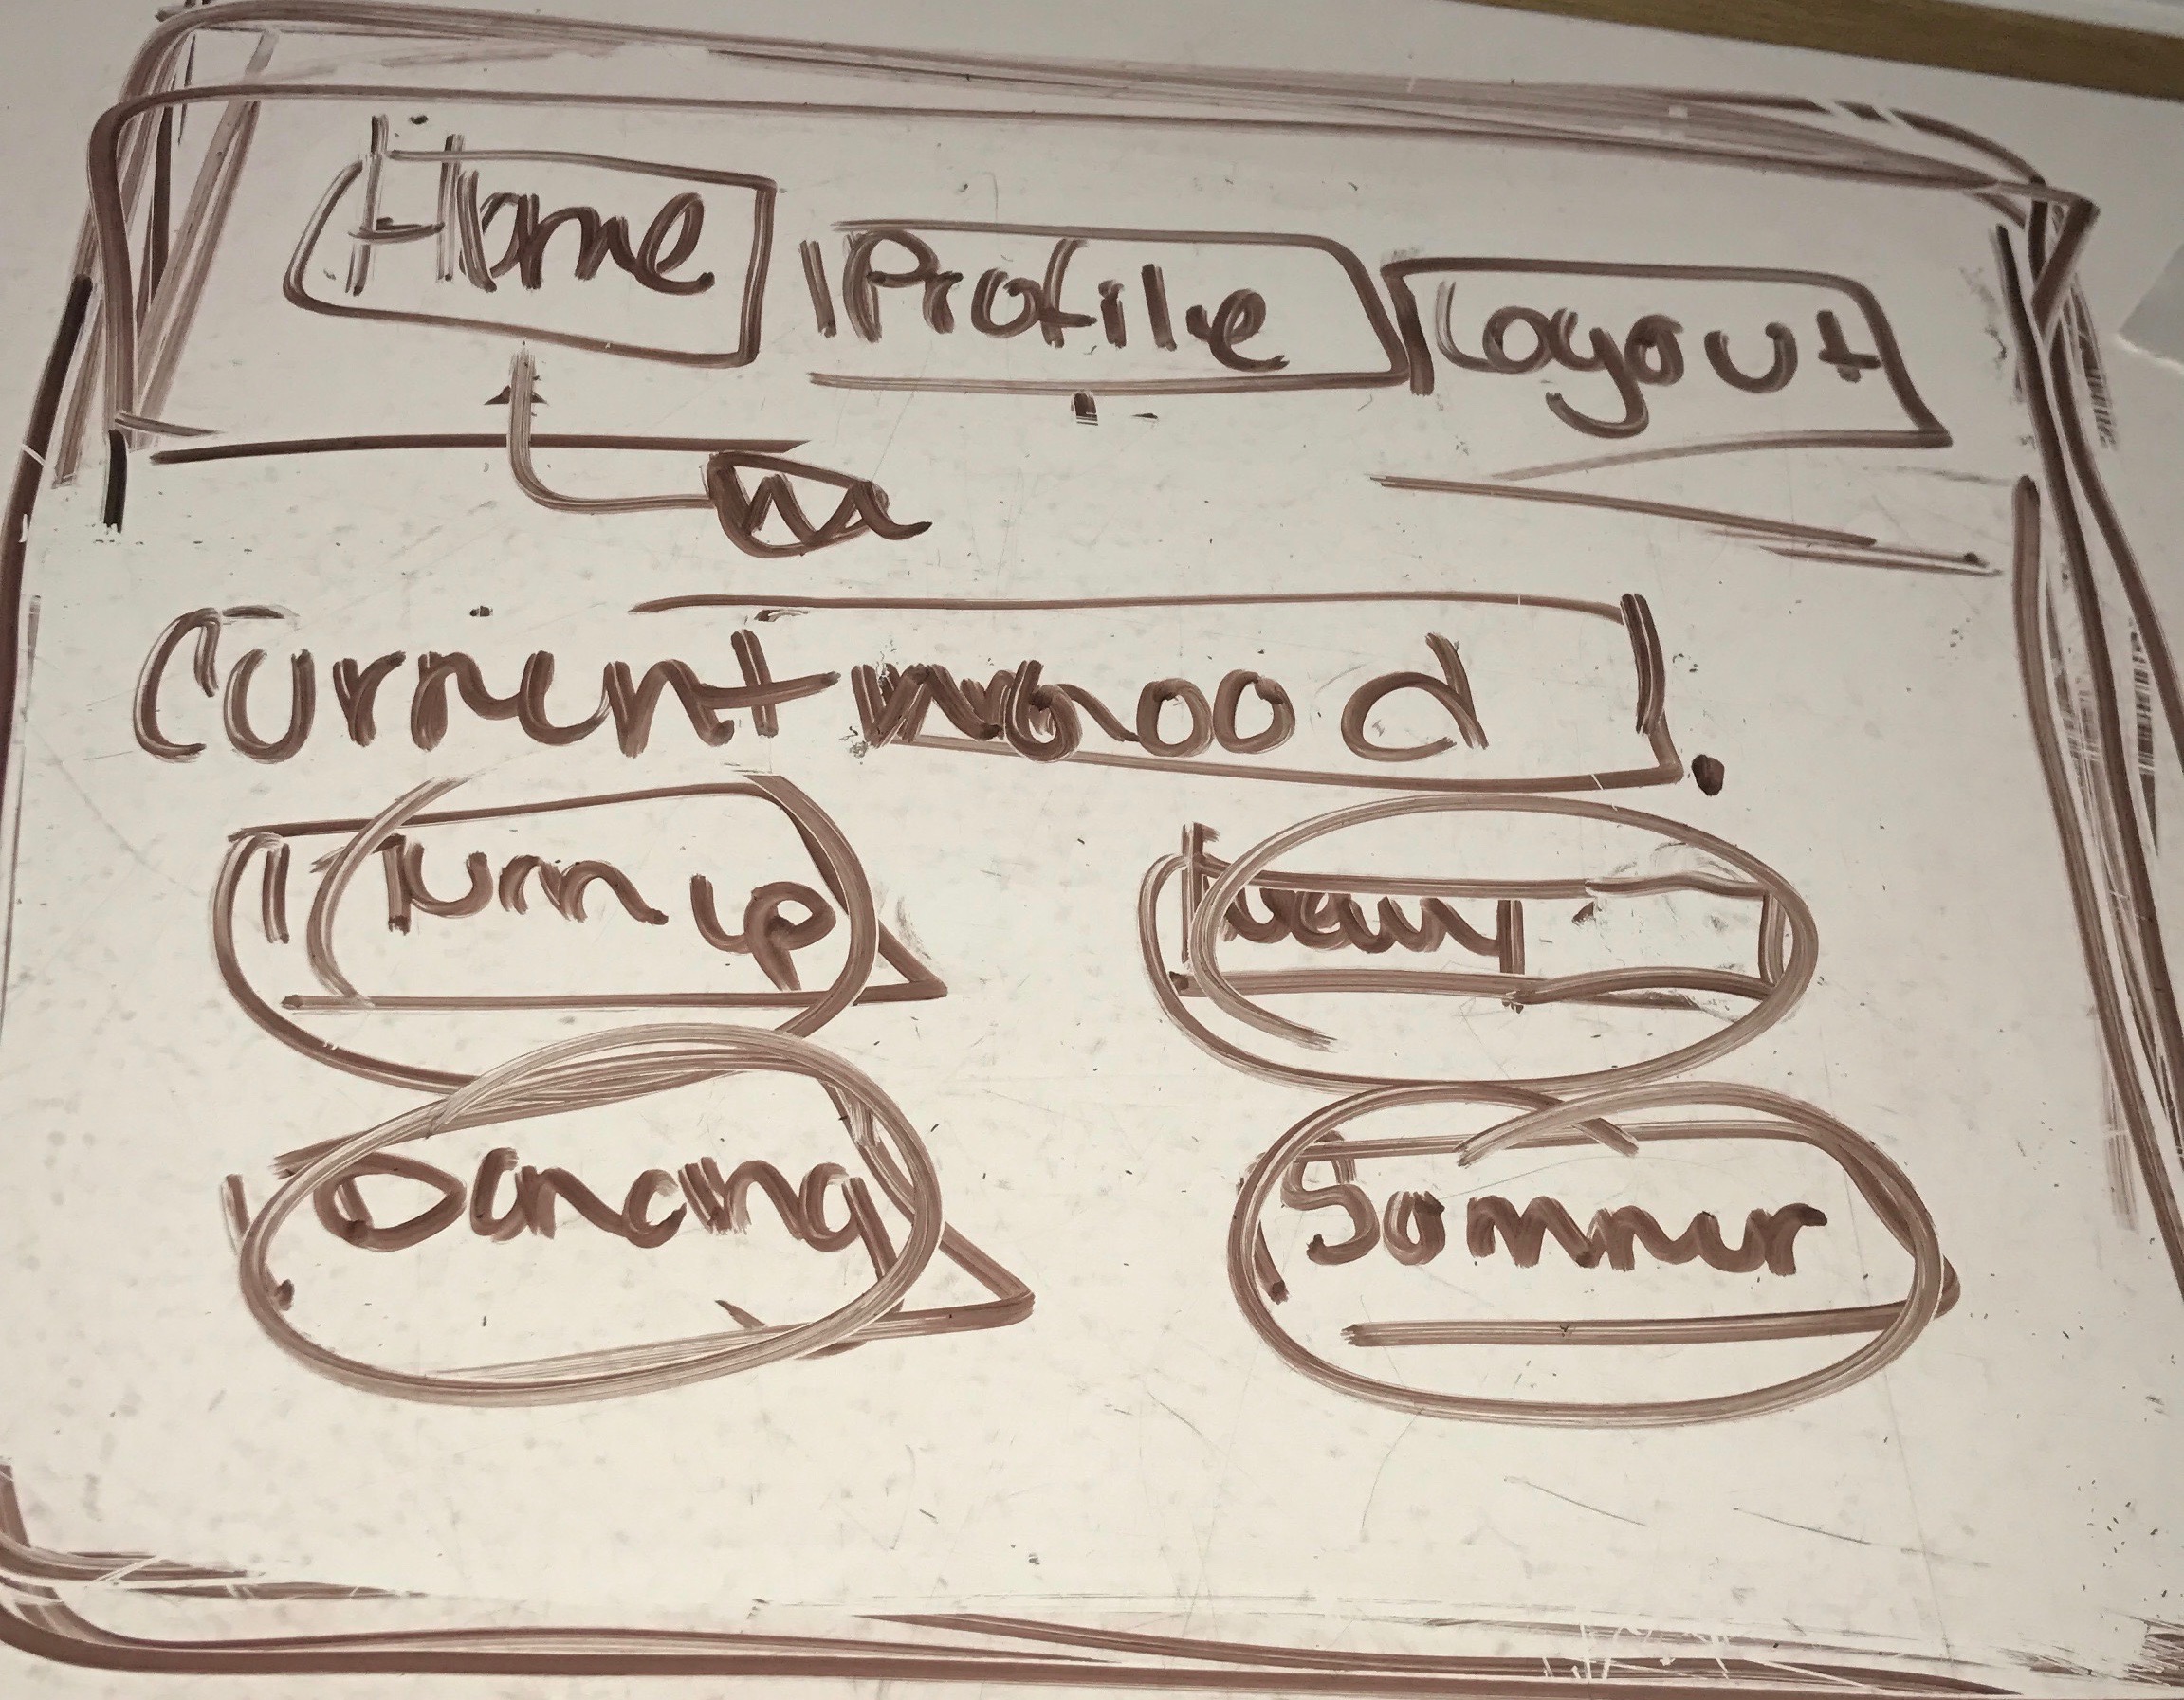 Home Profile Logout
Current mood
Turn up
Dancing Sommer